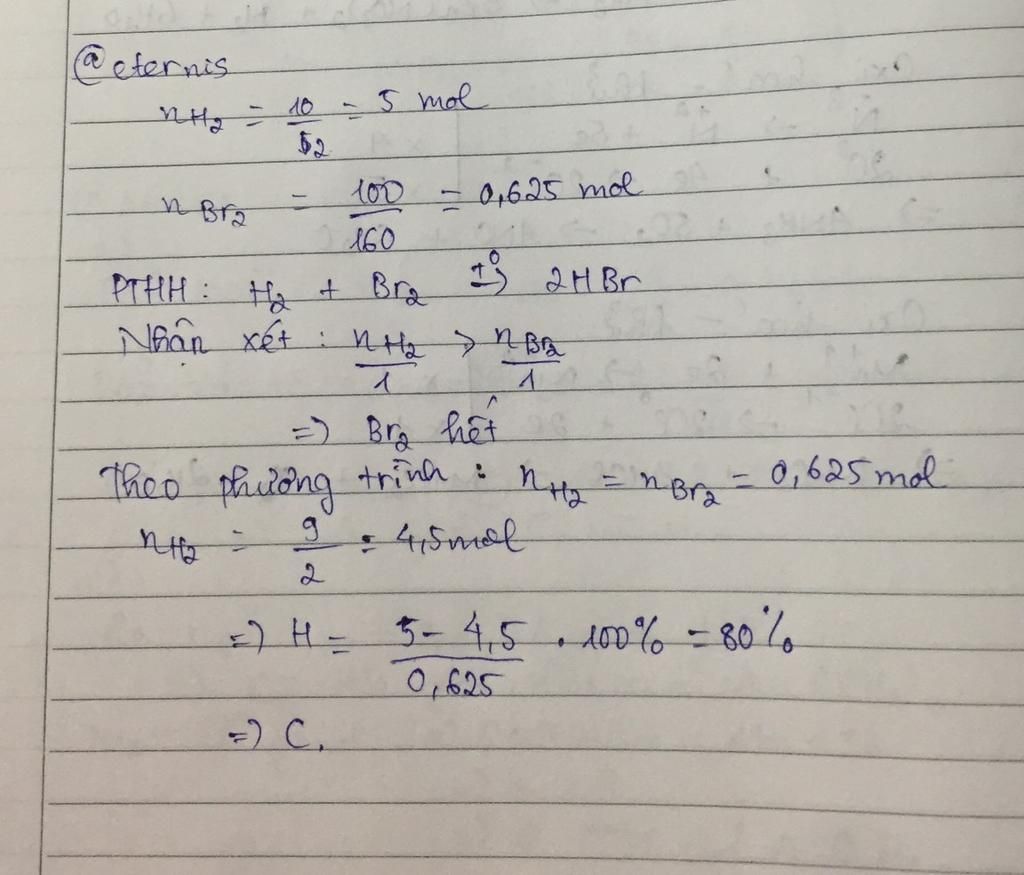 @eternis
n H2 = 10/2 = 5 mol
n Br2 = 100/160 = 0,625 mol
PTHH : H2 + Br2 t° → 2HBr
Nhận xét : n H2/1 > n Br2/1
=> Br2 hết
Theo phương trình : n H2 = n Br2 = 0,625 mol
n H2 = 9/2 = 4,5 mol
=> H = 5 - 4,5/0,625 . 100% = 80%
=> C.